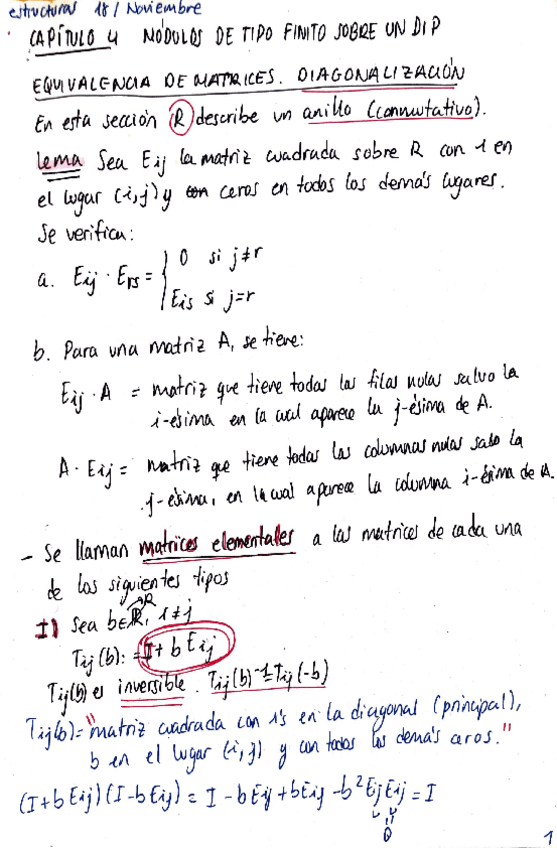 estructuras 18/Noviembre
CAPÍTULO 4 MÓDULOS DE TIPO FINITO SOBRE UN DIP
EQUIVALENCIA DE MATRICES. DIAGONALIZACIÓN
En esta sección R describe un anillo (conmutativo).
Lema Sea Eij la matriz cuadrada sobre R con 1 en
el lugar (i,j) y con ceros en todos los demás lugares.
Se verifica:
a. Eij · Ers = { 0 si j≠r
Eis si j=r
b. Para una matriz A, se tiene:
Eij · A = matriz que tiene todas las filas nulas salvo la
i-ésima en la cual aparece la j-ésima de A.
A · Eij = matriz que tiene todas las columnas nulas salvo la
j-ésima, en la cual aparece la columna i-ésima de A.
- Se llaman matrices elementales a las matrices de cada una
de los siguientes tipos
I) Sea b∈R, i≠j
Tij(b): = I + b Eij
Tij(b) es inversible. Tij(b)⁻¹ = Tij(-b)
Tij(b)= "matriz cuadrada con 1's en la diagonal (principal),
b en el lugar (i,j) y con todos los demás ceros."
(I+bEij)(I-bEij) = I - bEij + bEij - b²EijEij = I
0
1